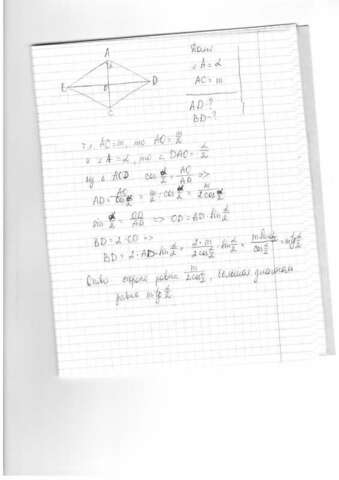 A
α
B D
O
C
Дано
∠A = α
AC = m
AD-?
BD-?
т.к. AC = m, то AO = m/2
∠A = α, то ∠DAO = α/2
AOD cos α/2 = AO/AD =>
AD = AO/cos α/2 = m/2 : cos α/2 = m/2cos α/2
sin α/2 = OD/AD => OD = AD · sin α/2
BD = 2 · OD =>
BD = 2 · AD · sin α/2 = 2·m/2cos α/2 · sin α/2 = m sin α/2/cos α/2 = m tg α/2
сторона равна m/2cos α/2, большая диагональ
равна m tg α/2